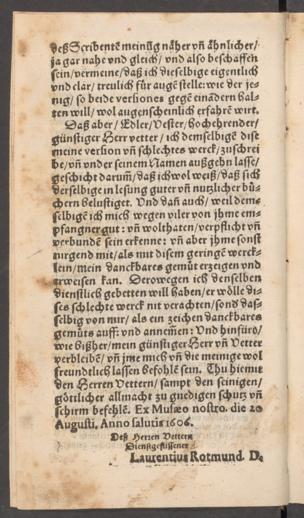 deß Scribentē meinūg näher vñ ähnlicher/
ja gar nahe vnd gleich/ vnd also beschaffen
sein/ vermeine/ daß ich dieselbige eigentlich
vnd clar/ treulich für augē stelle: wie der je-
nig/ so beide versiones gegē einādern hal-
ten will/ wol augenscheinlich erfahrē wirt.
Daß aber/ Edler/ Vester/ hochehrender/
günstiger Herr vetter/ ich demselbigē dise
meine version vñ schlechtes werck/ zuschrei
be/ vñ vnder seinem Namen außgehn lasse/
geschicht darum̃/ daß ich wol weiß/ daß sich
derselbige in lesung guter vñ nutzlicher bü-
chern belustiget. Vnd dañ auch/ weil dem-
selbigē ich mich wegen viler von jhme em-
pfangner gut: vñ wolthaten/ verpflicht vñ
verbundē sein erkenne: vñ aber jhme sonst
nirgend mit/ als mit disem geringē werck-
lein/ mein danckbares gemüt erzeigen vnd
erweisen kan. Derowegen ich denselben
dienstlich gebetten will haben/ er wölle di-
ses schlechte werck nit verachten/ sond̄ das-
selbig von mir/ als ein zeichen danckbares
gemüts auff: vnd annem̃en: Vnd hinfüro/
wie bißher/ mein günstiger Herr vñ Vetter
verbleibē/ vñ jme mich vñ die meinige wol
freundtlich lassen befohlē sein. Thu hiemit
den Herren Vettern/ sampt den seinigen/
göttlicher allmacht zu gnedigen schutz vñ
schirm befehlē. Ex Musæo nostro. die 20
Augusti, Anno salutis 1606.
Deß Herren Vettern
Dienstgeflissener
Laurentius Rotmund. D.